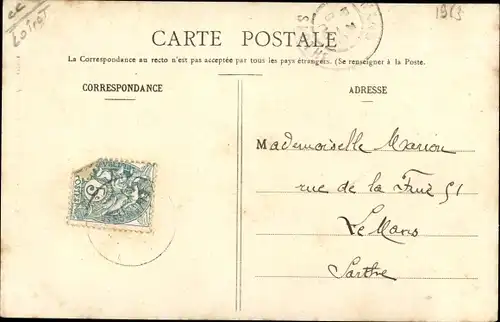 cc
Loiret
1913
CARTE POSTALE
La Correspondance au recto n'est pas acceptée par tous les pays étrangers. (Se renseigner à la Poste.
CORRESPONDANCE
ADRESSE
Mademoiselle Marion
rue de la
51
Le Mans
Sarthe